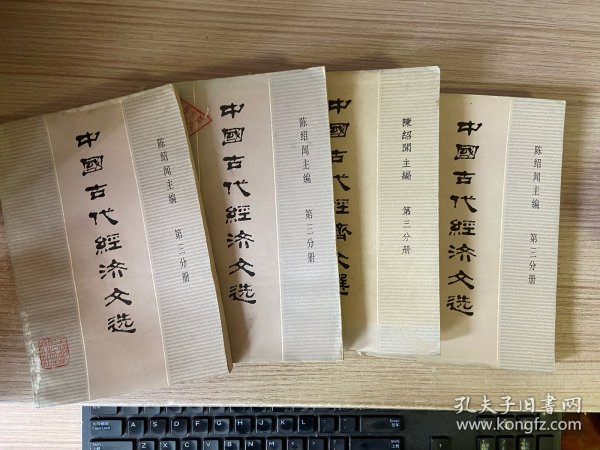 中國古代經済文选
陈绍闻主编
第二分册
中國古代經済文选
陈绍闻主编
第三分册
中國古代經濟文選
陳紹聞主編
第三分册
中國古代經済文选
陈绍闻主编
第二分册
孔夫子旧书网